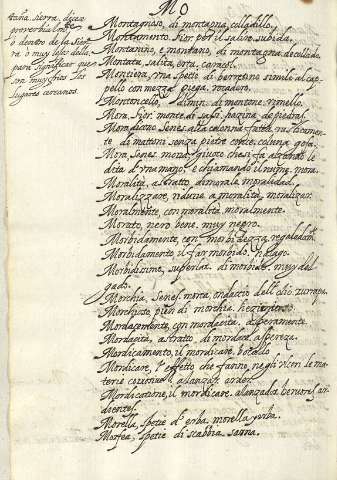 Mo
taña, sierra, dicese
proverbialmte
o dentro de la Sier
ra o muy lexos della
para significar que
son muchos los
lugares cercanos.
Montagnoso, di montagna, colladillo.
Montamento, Fior. por il salire, subida.
Montanino, e montano, di montagna, de collado.
Montata, salita, erta, caracol.
Montiera, una spetie di berettone simile al cap
pello con mezza piega,
Montoncello, dimin. di montone,
Mora, Fior. monte di sassi, pagina, de piedras.
Senes. alla colonna fatta rusticamen
te di mattoni senza pietre conte, coluna gosa.
Mora, Senes. mora, giuoco che si fa alzando le
dita d'una mano, e chiamando il numero, mora.
Moralità, astratto di morale, moralidad.
Moralizzare, ridurre a moralità, moralizar.
Moralmente, con moralità, moralmente.
Morato, nero bene, muy negro.
Morbidamente, con morbidezza, regaladamte
Morbidamento, il far morbido, halago.
Morbidissimo, superla. di morbido, muy del
gado.
Morchia, Senes. morca, fondaccio dell'olio, zurrapa.
Morchioso, pien di morchia,
Mordacemente, con mordacità, asperamente.
Mordacità, astratto di mordace, aspereza.
Mordicamento, il mordicare, bocado.
Mordicare, l'effetto che fanno, negli ulceri le ma
terie corrosive, alanzar, arder.
Mordicatione, il mordicare, alanzador, hervores, ar
dientes.
Morella, spetie d'erba, morella yerba.
Morfea, spetie di scabbia, sarna.